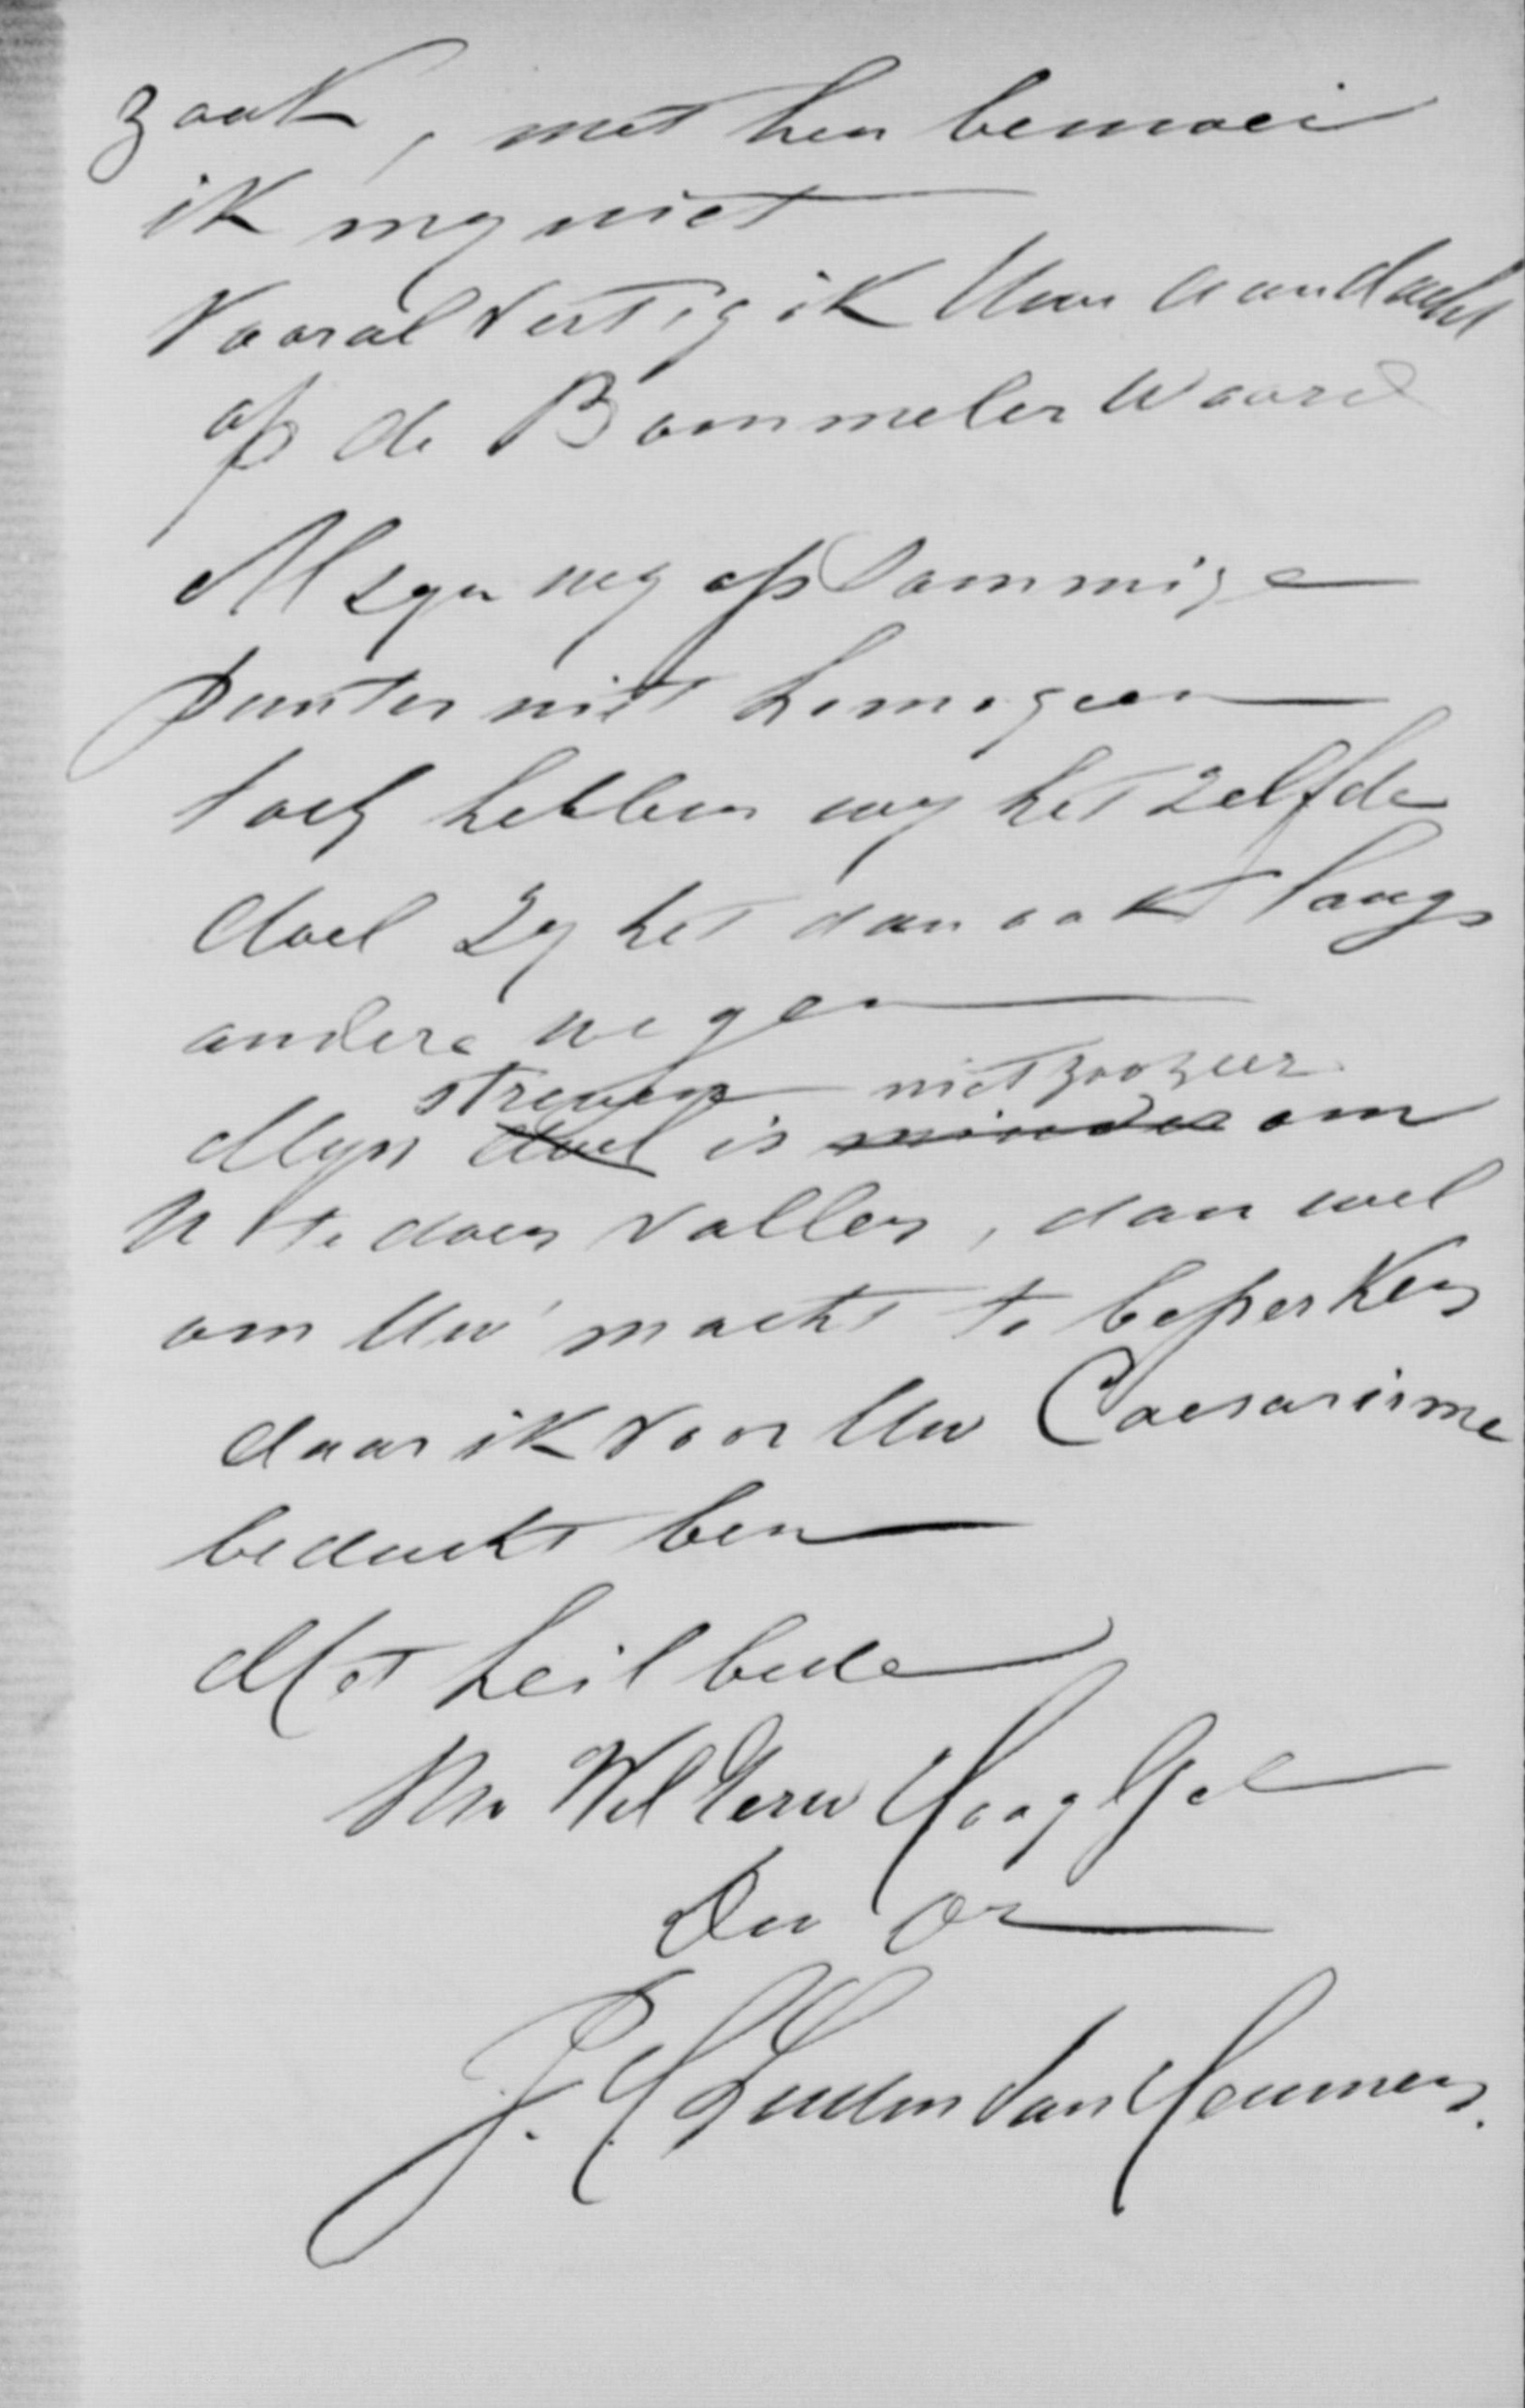 zaak, met hen bemoei
ik my niet
Vooral vestig ik Uwe aandacht
op de Bommelerwaard
Al zyn wy op sommige
punten niet homogeen
toch hebben wy het zelfde
doel zy het dan ook langs
andere wegen
streven niet zoozeer
Myn doel is minder om
U te doen vallen, dan wel
om Uw macht te beperken
daar ik voor Uw Caesarisme
beducht ben
Met heilbede
Uw WelEerw HoogGel
Dw Dr
J. C. Luden van Heumen.